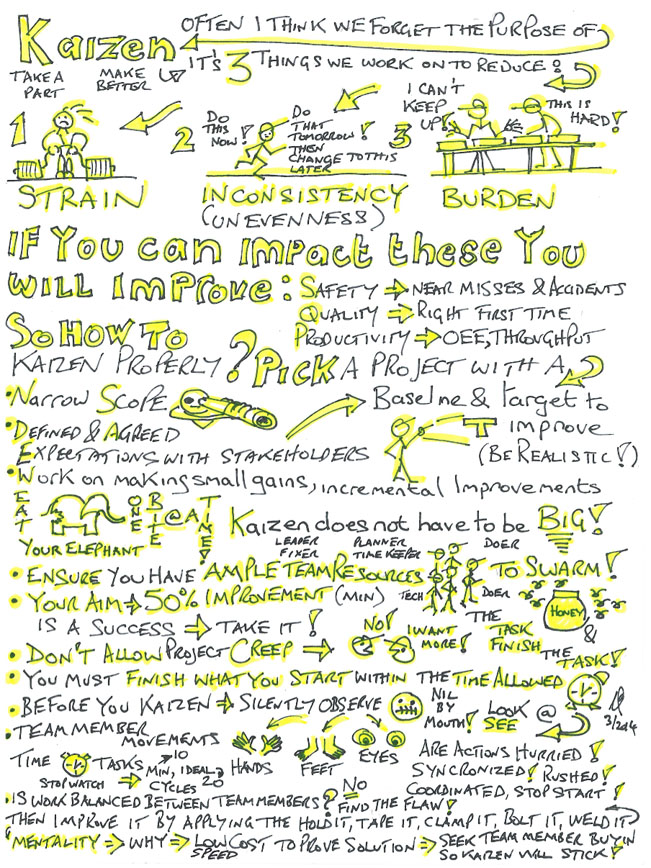 Kaizen OFTEN I THINK WE FORGET THE PURPOSE OF
TAKE A PART MAKE BETTER IT'S 3 THINGS WE WORK ON TO REDUCE:
1 STRAIN
2 DO THIS NOW! DO THAT TOMORROW! THEN CHANGE TO THIS LATER
INCONSISTENCY
(UNEVENNESS)
3 I CAN'T KEEP UP! THIS IS HARD!
BURDEN
IF You can Impact these You
WILL IMPROVE: SAFETY → NEAR MISSES & ACCIDENTS
QUALITY → RIGHT FIRST TIME
PRODUCTIVITY → OEE, THROUGHPUT
SO HOW TO
KAIZEN PROPERLY? PICK A PROJECT WITH A
• NARROW SCOPE Baseline & target to
improve
(BE REALISTIC!)
• DEFINED & AGREED
EXPECTATIONS WITH STAKEHOLDERS
• Work on making small gains, incremental Improvements
EAT YOUR ELEPHANT ONE BITE @ A TIME!
Kaizen does not have to be BIG!
LEADER FIXER PLANNER TIME KEEPER DOER
• ENSURE YOU HAVE AMPLE TEAM RESOURCES TO SWARM!
TECH DOER HONEY
• YOUR AIM → 50% IMPROVEMENT (MIN)
IS A SUCCESS → TAKE IT!
THE TASK & FINISH THE TASK!
• DON'T ALLOW PROJECT CREEP → NO! I WANT MORE!
• YOU MUST FINISH WHAT YOU START WITHIN THE TIME ALLOWED
• BEFORE YOU KAIZEN → SILENTLY OBSERVE NIL BY MOUTH! LOOK @ SEE
3/2014
• TEAM MEMBER
MOVEMENTS HANDS FEET EYES
TIME STOPWATCH TASKS → 10 MIN, IDEAL 20 CYCLES
ARE ACTIONS HURRIED!
SYNCRONIZED! RUSHED!
COORDINATED, STOP START!
• IS WORK BALANCED BETWEEN TEAM MEMBERS? NO FIND THE FLAW!
THEN IMPROVE IT BY APPLYING THE HOLD IT, TAPE IT, CLAMP IT, BOLT IT, WELD IT
MENTALITY → WHY → LOW COST SPEED TO PROVE SOLUTION → SEEK TEAM MEMBER BUY IN
SO KAIZEN WILL STICK!